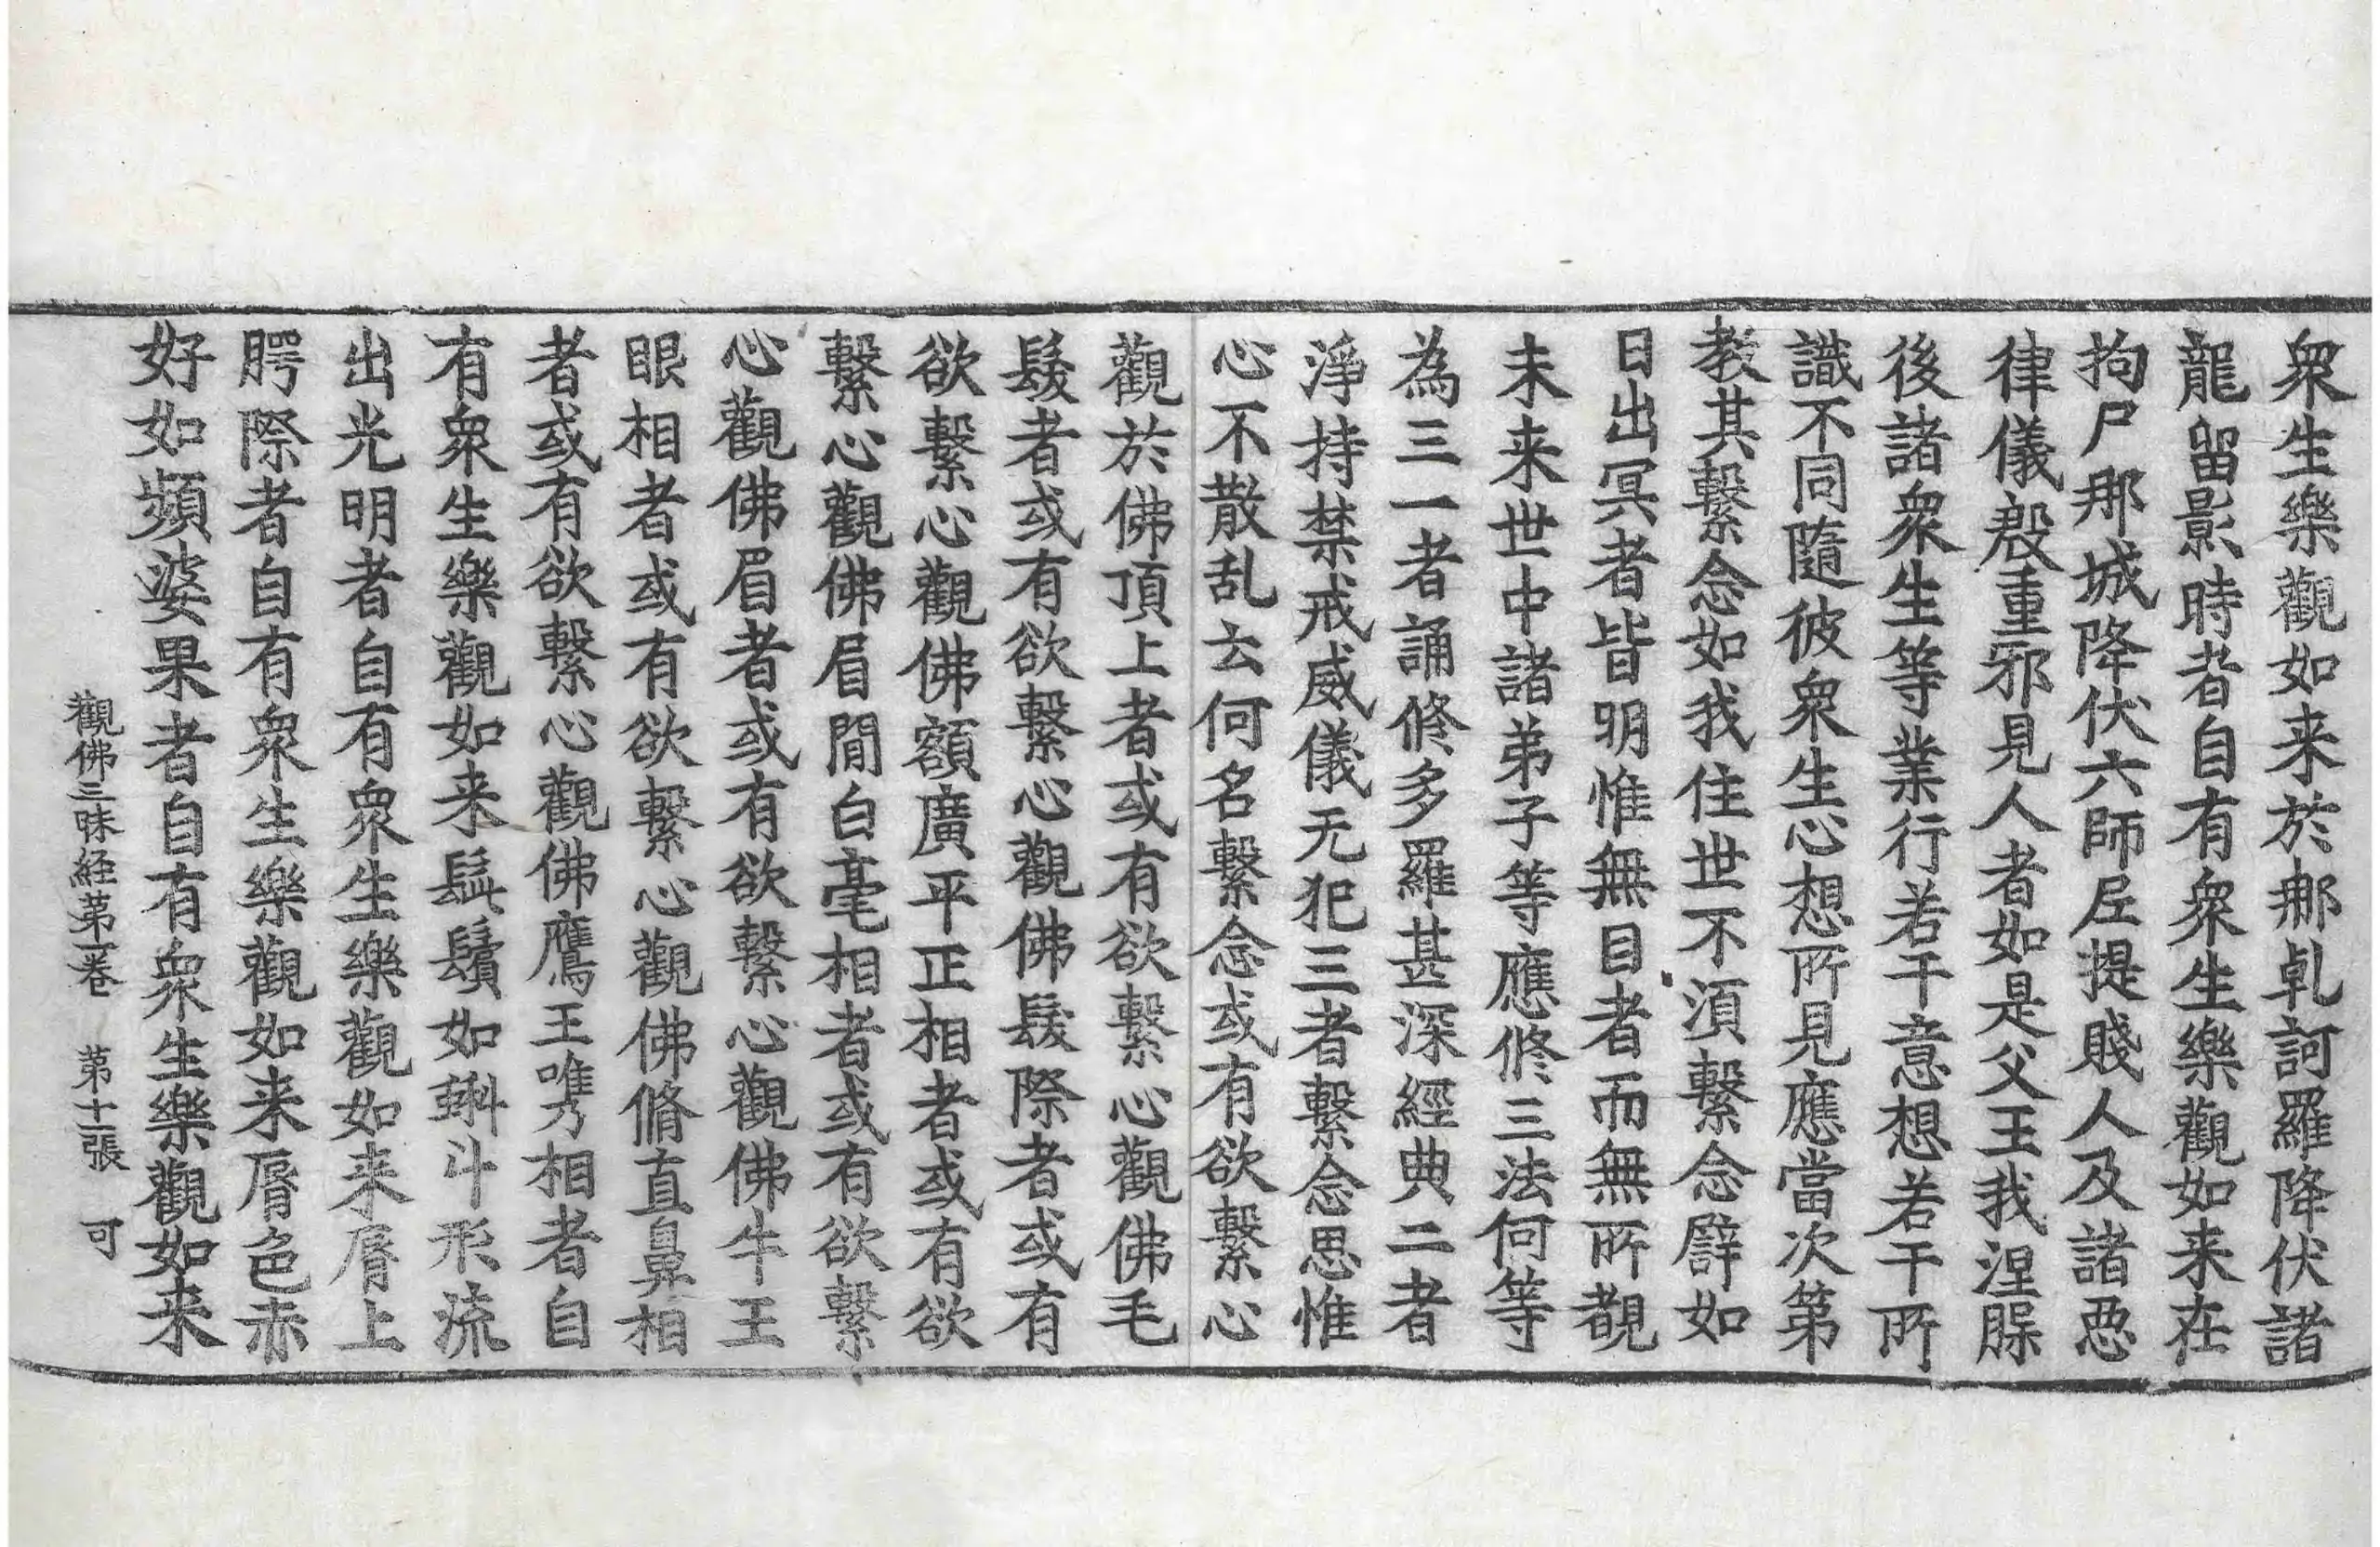 衆生樂觀如来於那乹訶羅降伏諸
龍留影時者自有衆生樂觀如来在
拘尸那城降伏六師𡰱提賤人及諸惡
律儀殷重邪見人者如是父王我涅槃
後諸衆生等業行若干意想若干所
識不同隨彼衆生心想所見應當次第
教其繫念如我住世不湏繫念譬如
日出冥者皆明惟無目者而無所覩
未来世中諸弟子等應修三法何等
為三一者誦修多羅甚深經典二者
淨持禁戒威儀无犯三者繫念思惟
心不散乱云何名繫念或有欲繫心
觀於佛頂上者或有欲繫心觀佛毛
髮者或有欲繫心觀佛髮際者或有
欲繫心觀佛額廣平正相者或有欲
繫心觀佛眉間白毫相者或有欲繫
心觀佛眉者或有欲繫心觀佛牛王
眼相者或有欲繫心觀佛脩直鼻相
者或有欲繫心觀佛鷹王㗱相者自
有衆生樂觀如来髭鬚如蝌斗形流
出光明者自有衆生樂觀如来脣上
腭際者自有衆生樂觀如来脣色赤
好如頻婆果者自有衆生樂觀如来
觀佛三昧経第一卷 第十二張 可